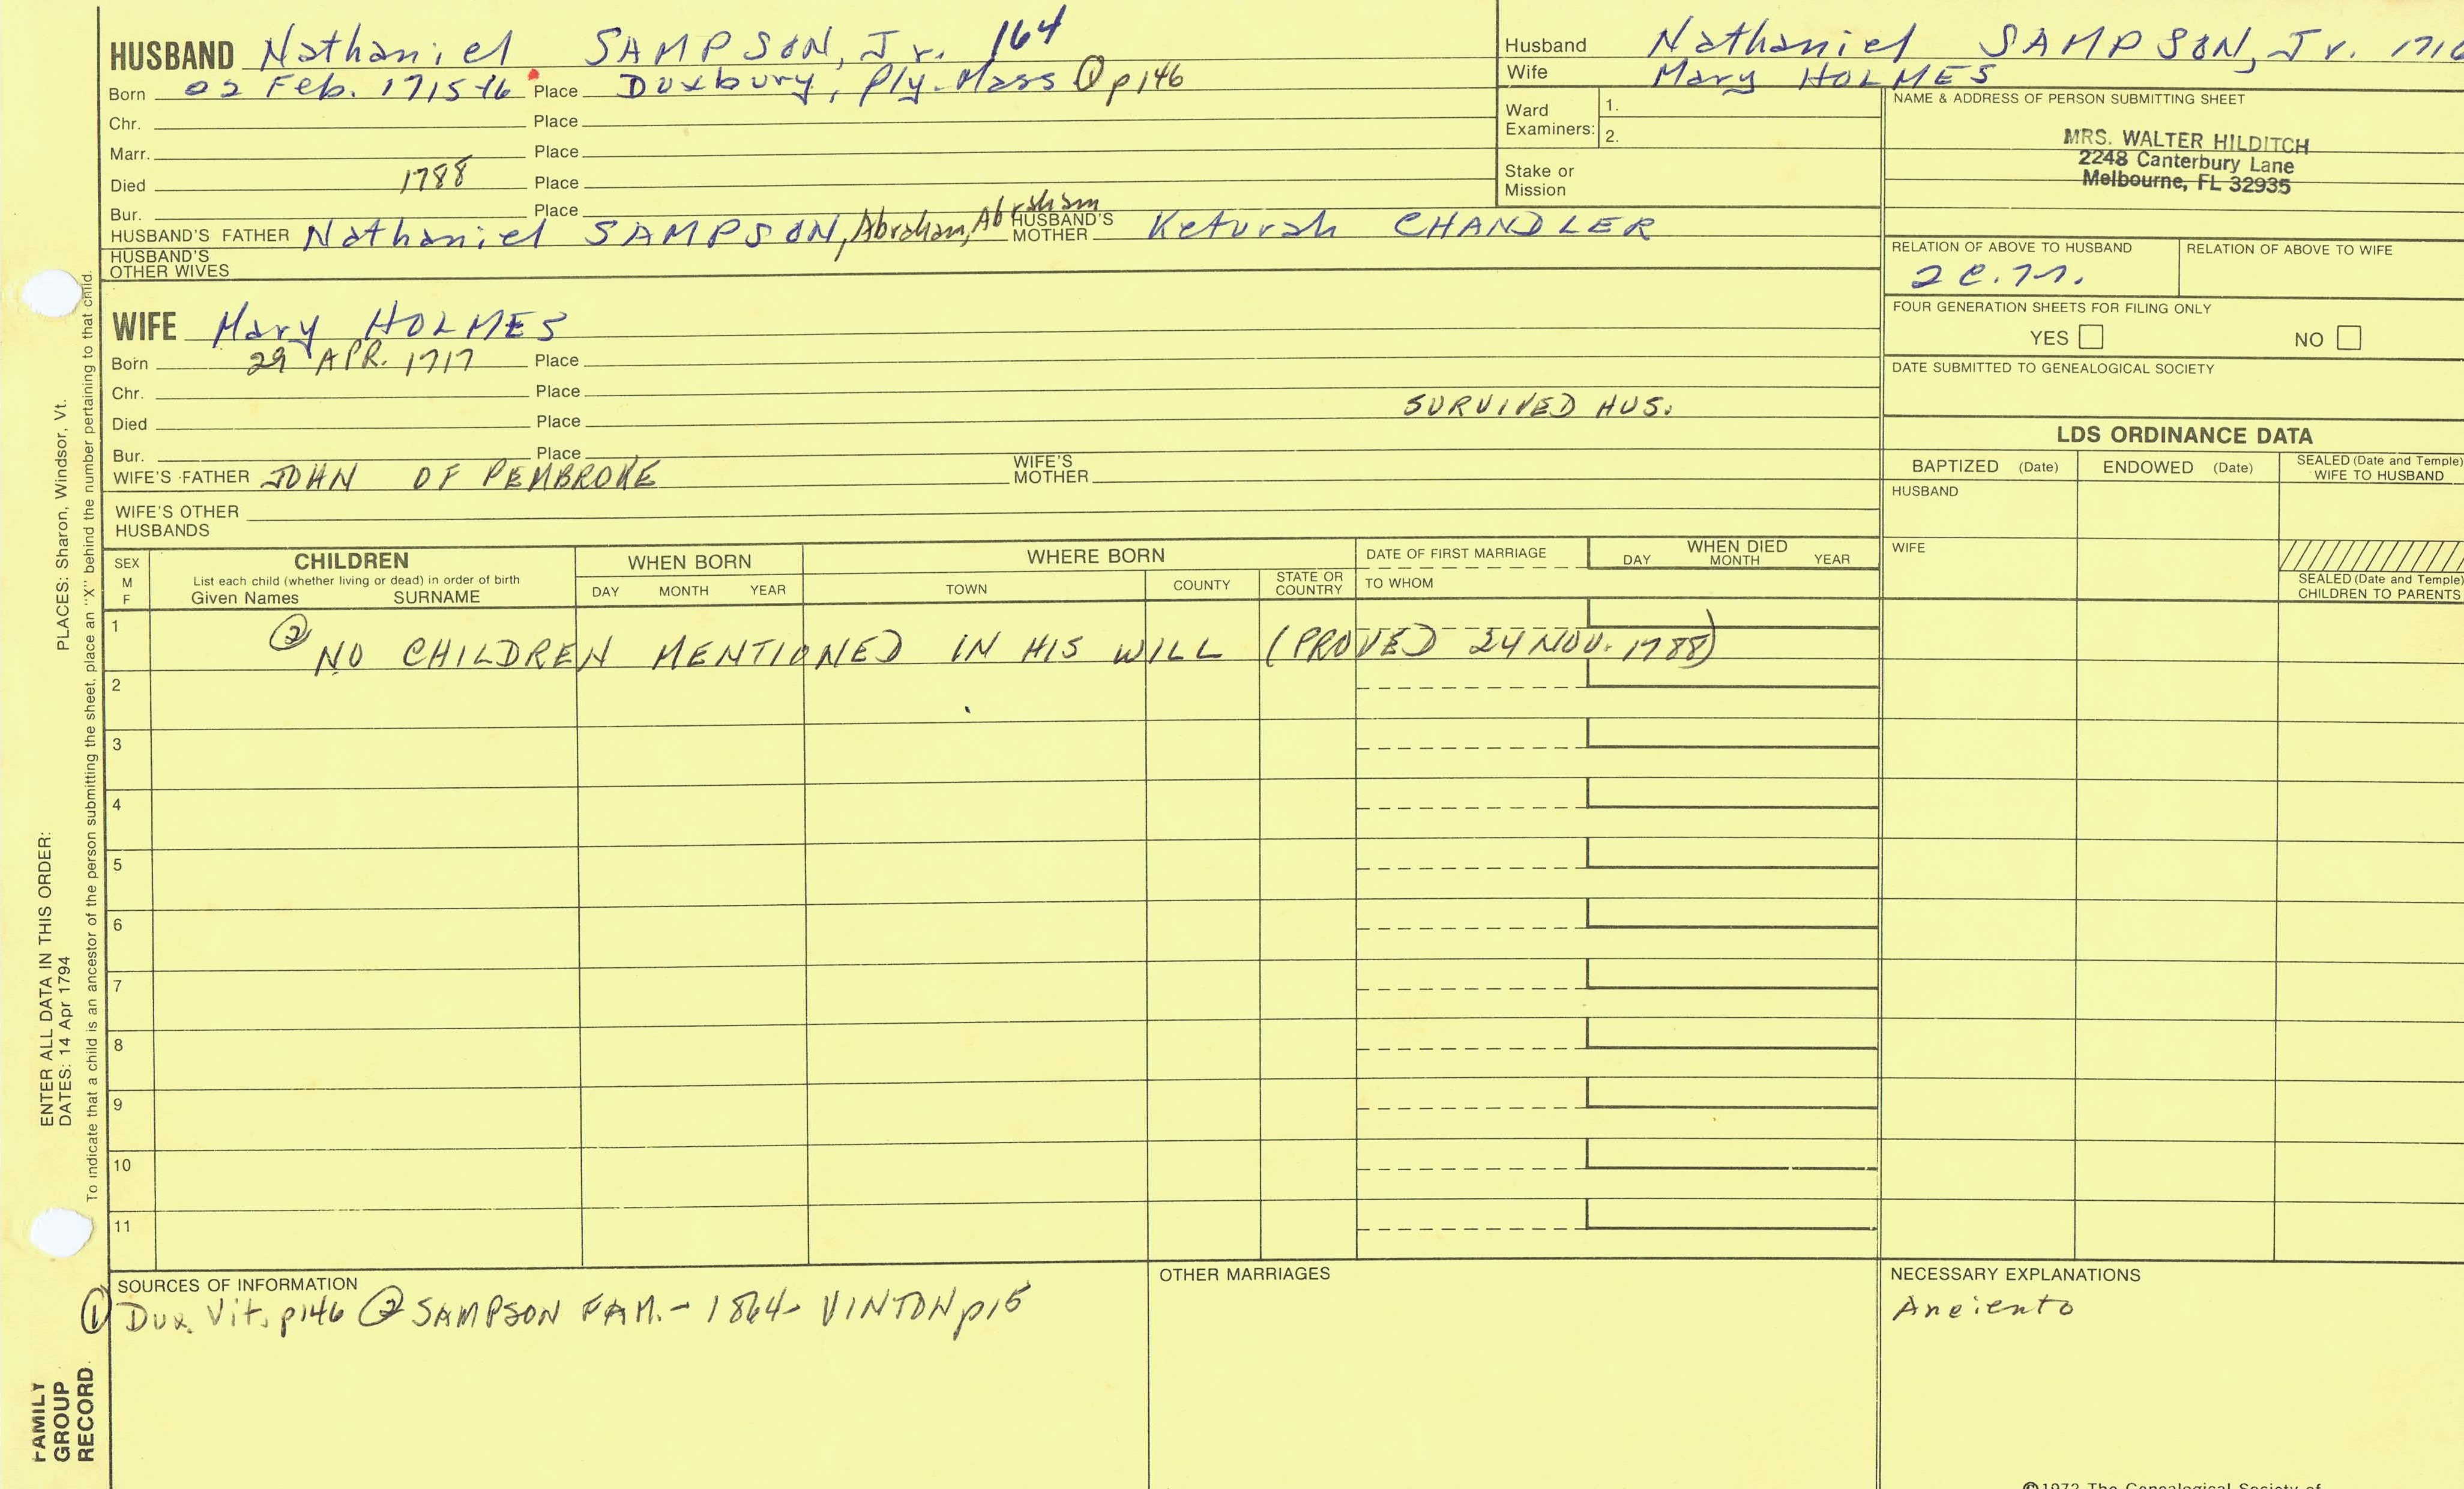 HUSBAND Nathaniel SAMPSON, Jr. 164
Born 02 Feb. 1715-16 Place Duxbury, Ply. Mass ① p146
Chr. Place
Marr. Place
Died 1788 Place
Bur. Place
HUSBAND'S FATHER Nathaniel SAMPSON, Abraham, Abraham HUSBAND'S MOTHER Keturah CHANDLER
HUSBAND'S OTHER WIVES
WIFE Mary HOLMES
Born 29 APR. 1717 Place
Chr. Place
SURVIVED HUS.
Died Place
Bur. Place
WIFE'S FATHER JOHN OF PEMBROKE WIFE'S MOTHER
WIFE'S OTHER HUSBANDS
Husband Nathaniel SAMPSON, Jr. 1716
Wife Mary HOLMES
Ward Examiners: 1.
2.
Stake or Mission
NAME & ADDRESS OF PERSON SUBMITTING SHEET
MRS. WALTER HILDITCH
2248 Canterbury Lane
Melbourne, FL 32935
RELATION OF ABOVE TO HUSBAND RELATION OF ABOVE TO WIFE
FOUR GENERATION SHEETS FOR FILING ONLY
YES NO
DATE SUBMITTED TO GENEALOGICAL SOCIETY
LDS ORDINANCE DATA
BAPTIZED (Date) ENDOWED (Date) SEALED (Date and Temple) WIFE TO HUSBAND
HUSBAND
WIFE
SEALED (Date and Temple) CHILDREN TO PARENTS
SEX M F CHILDREN WHEN BORN WHERE BORN DATE OF FIRST MARRIAGE WHEN DIED
List each child (whether living or dead) in order of birth
Given Names SURNAME DAY MONTH YEAR TOWN COUNTY STATE OR COUNTRY TO WHOM DAY MONTH YEAR
1 ② NO CHILDREN MENTIONED IN HIS WILL (PROVED 24 NOV. 1788)
2
3
4
5
6
7
8
9
10
11
SOURCES OF INFORMATION
① Dux. Vit. p146 ② SAMPSON FAM. - 1864 - VINTON p15
OTHER MARRIAGES
NECESSARY EXPLANATIONS
ENTER ALL DATA IN THIS ORDER:
DATES: 14 Apr 1794 PLACES: Sharon, Windsor, Vt.
To indicate that a child is an ancestor of the person submitting the sheet, place an "X" behind the number pertaining to that child.
FAMILY
GROUP
RECORD
©1972 The Genealogical Society of